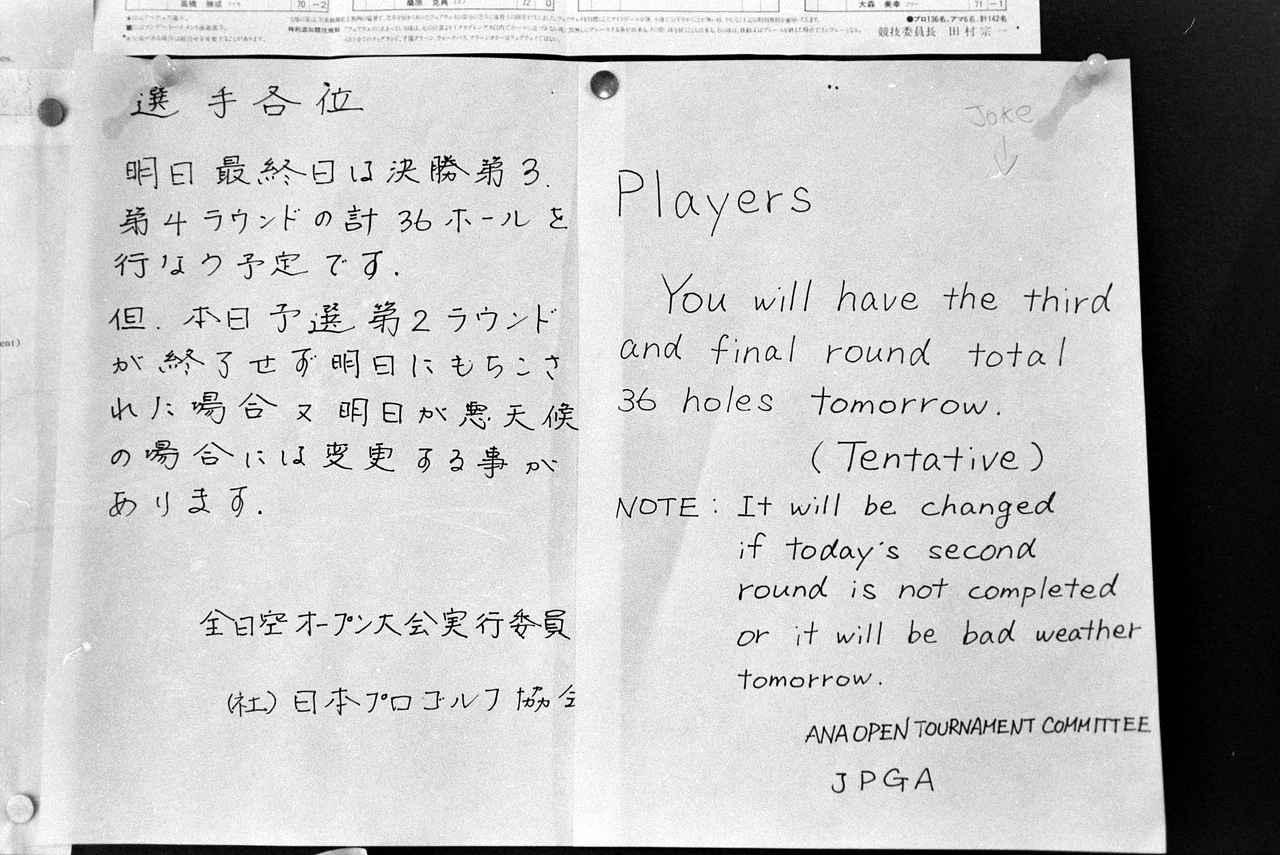 70 -2
72 0
71 -1
●プロ136名、アマ6名、計142名
競技委員長 田村宗一
選手各位
明日最終日は決勝第3.
第4ラウンドの計36ホールを
行なう予定です.
但.本日予選第2ラウンド
が終了せず明日にもちこさ
れた場合又明日が悪天候
の場合には変更する事が
あります.
全日空オープン大会実行委員
(社)日本プロゴルフ協会
Joke
Players
You will have the third
and final round total
36 holes tomorrow.
(Tentative)
NOTE: It will be changed
if today's second
round is not completed
or it will be bad weather
tomorrow.
ANA OPEN TOURNAMENT COMMITTEE
JPGA